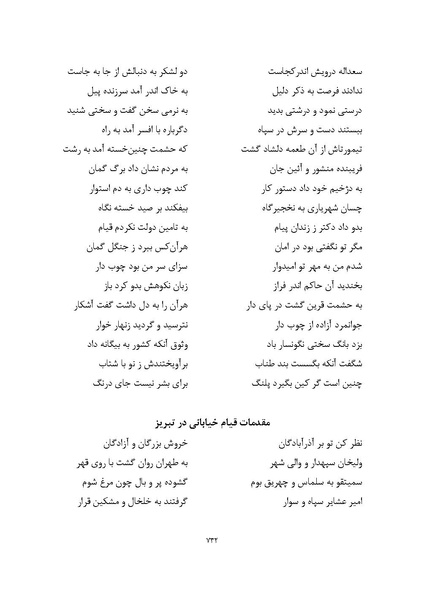 سعداله درویش اندرکجاست	دو لشکر به دنبالش از جا به جاست
ندادند فرصت به ذکر دلیل	به خاک اندر آمد سرزنده پیل
درستی نمود و درشتی بدید	به نرمی سخن گفت و سختی شنید
ببستند دست و سرش در سپاه	دگرباره با افسر آمد به راه
تیمورتاش از آن طعمه دلشاد گشت	که حشمت چنین‌خسته آمد به رشت
فریبنده منشور و آئین جان	به مردم نشان داد برگ گمان
به دژخیم خود داد دستور کار	کند چوب داری به دم استوار
چسان شهریاری به نخجیرگاه	بیفکند بر صید خسته نگاه
بدو داد دکتر ز زندان پیام	به تامین دولت نکردم قیام
مگر تو نگفتی بود در امان	هرآن‌کس ببرد ز جنگل گمان
شدم من به مهر تو امیدوار	سزای سر من بود چوب دار
بخندید آن حاکم اندر فراز	زبان نکوهش بدو کرد باز
به حشمت قرین گشت در پای دار	هرآن را به دل داشت گفت آشکار
جوانمرد آزاده از چوب دار	نترسید و گردید زنهار خوار
بزد بانگ سختی نگونسار باد	وثوق آنکه کشور به بیگانه داد
شگفت آنکه بگسست بند طناب	برآویختندش ز نو با شتاب
چنین است گر کین بگیرد پلنگ	برای بشر نیست جای درنگ
مقدمات قیام خیابانی در تبریز
نظر کن تو بر آذرآبادگان	خروش بزرگان و آزادگان
ولیخان سپهدار و والی شهر	به طهران روان گشت با روی قهر
سمیتقو به سلماس و چهریق بوم	گشوده پر و بال چون مرغ شوم
امیر عشایر سپاه و سوار	گرفتند به خلخال و مشکین قرار
۷۳۲